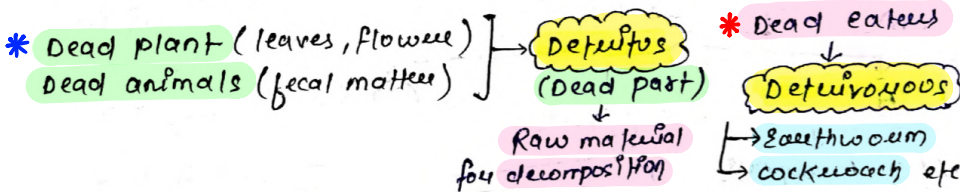 * Dead plant (leaves, flower) → Detritus
Dead animals (fecal matter)
(Dead part)
↓
Raw material
for decomposition
* Dead eaters
↓
Detrivorous
→ Earthworm
→ cockroach etc